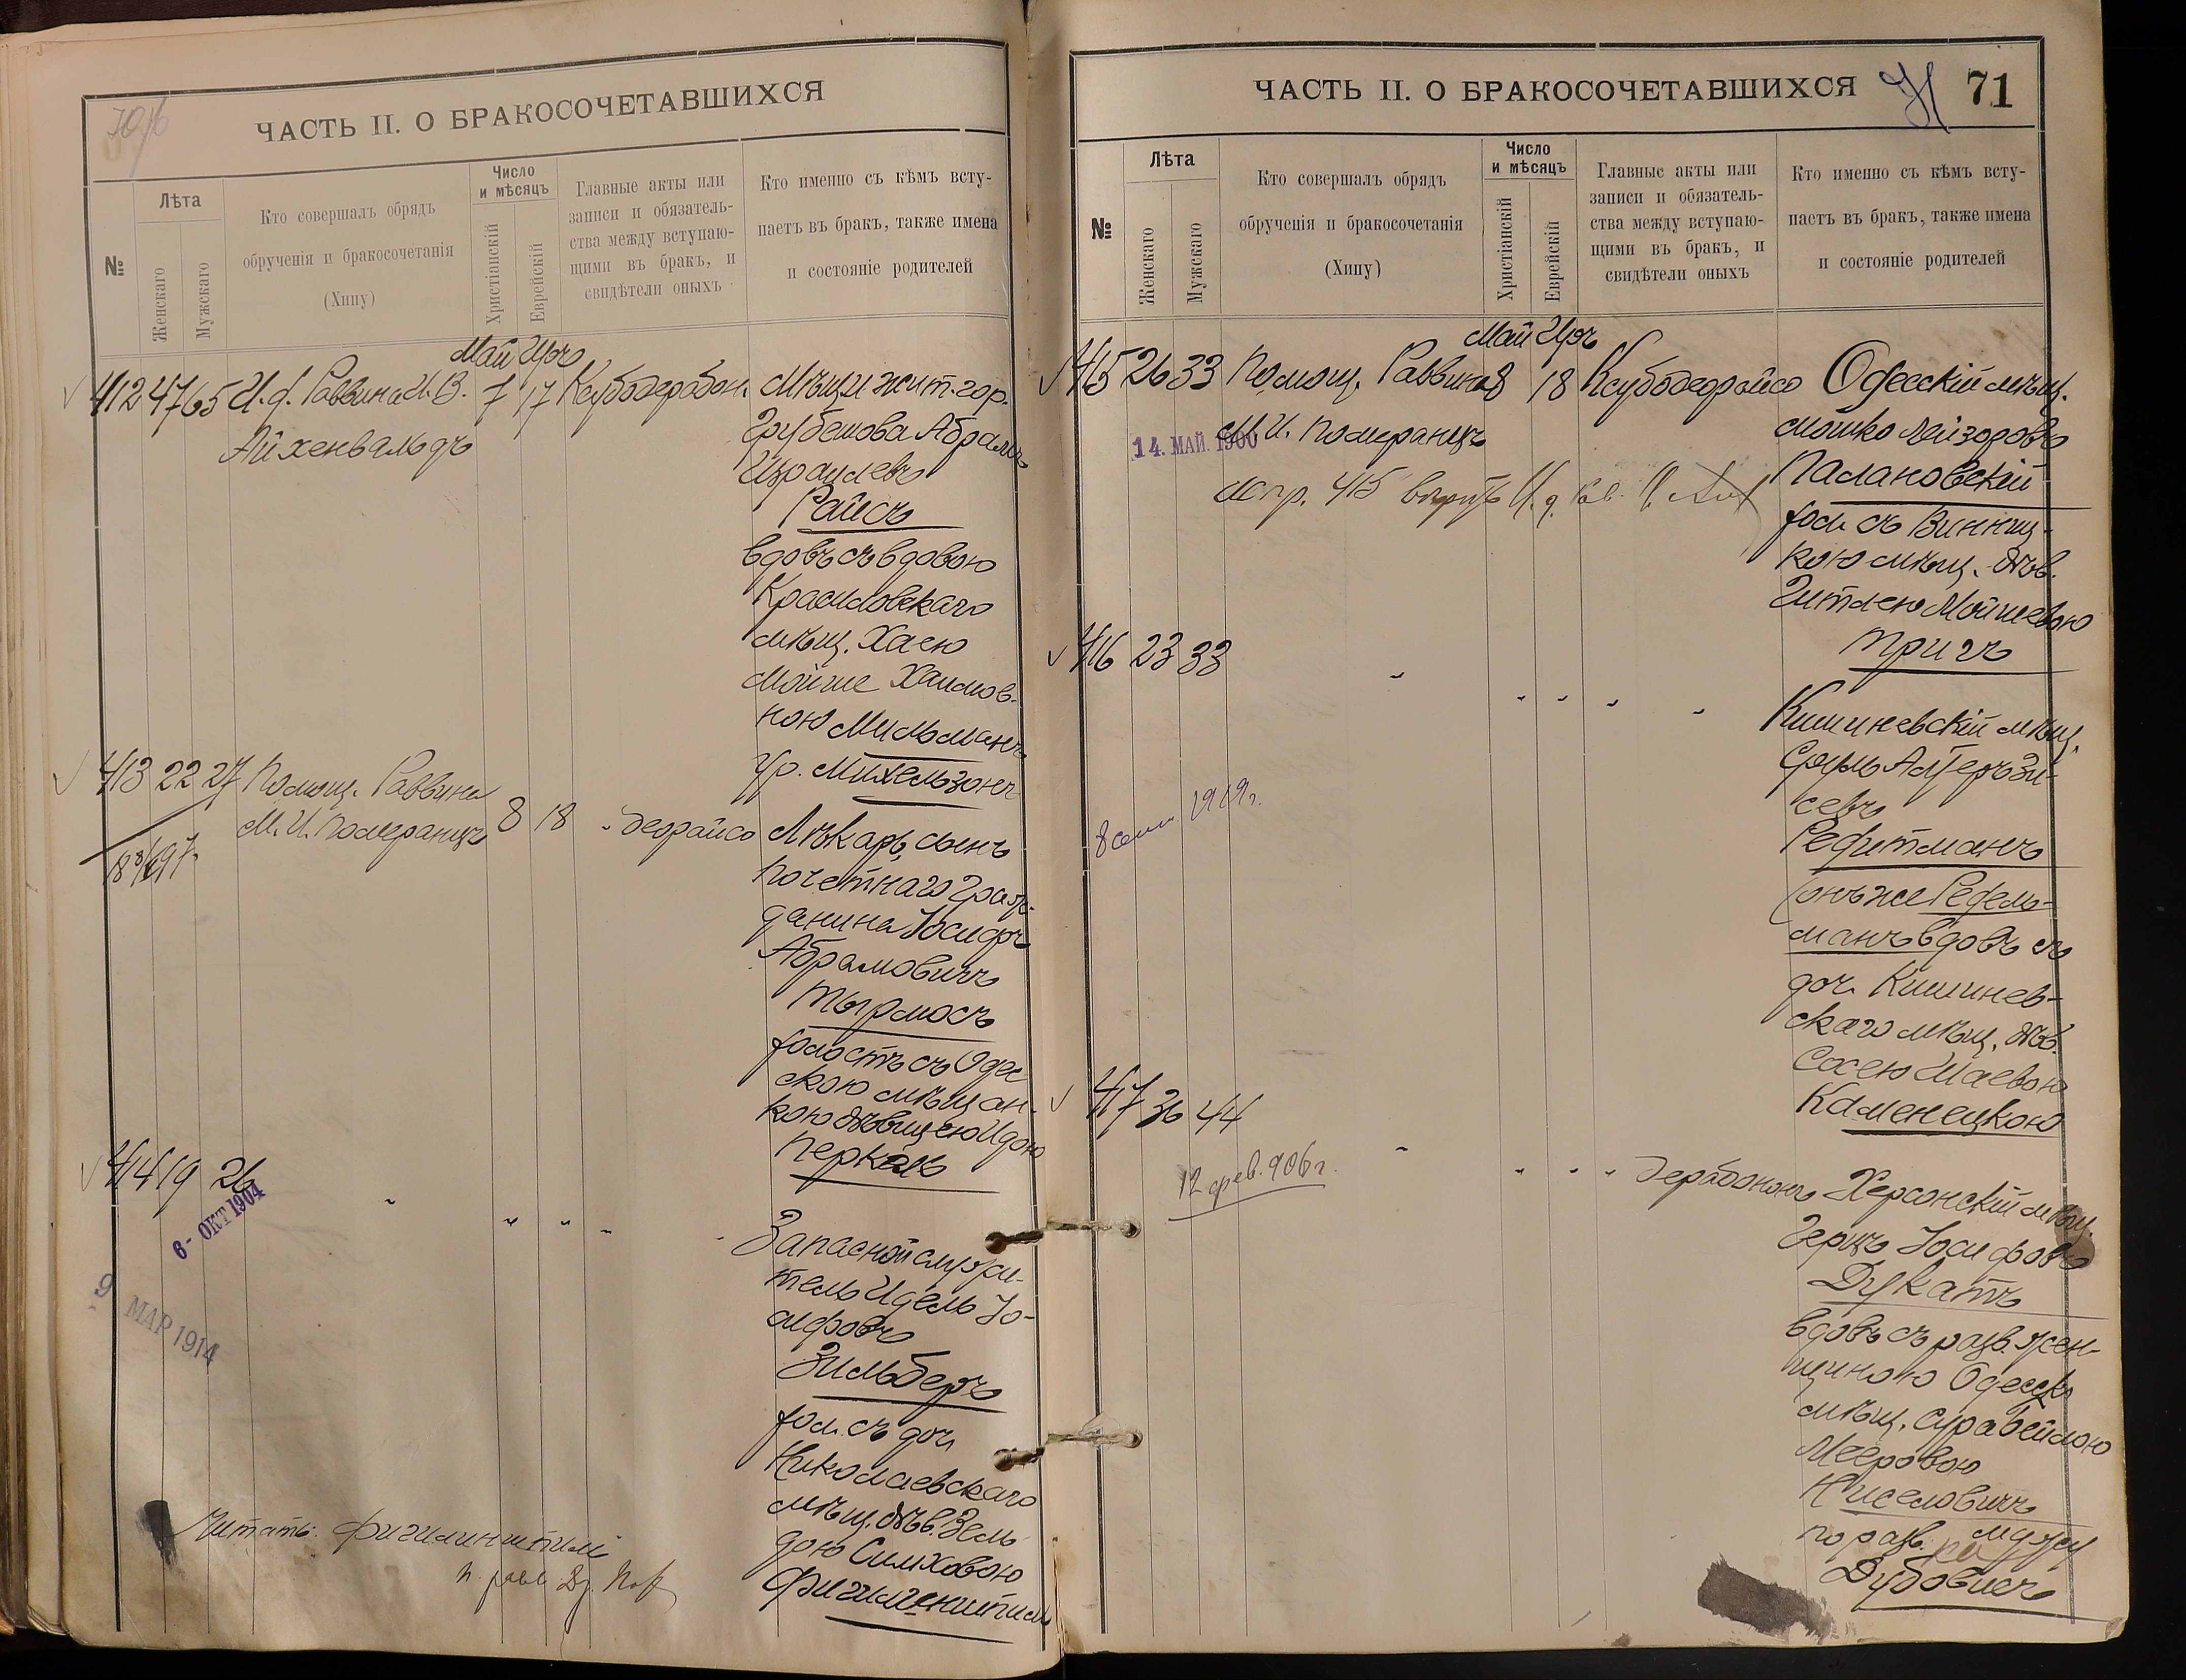 ЧАСТЬ II. О БРАКОСОЧЕТАВШИХСЯ
№
Лѣта
Женскаго
Мужскаго
Кто совершалъ обрядъ
обрученія и бракосочетанія
(Хипу)
Число
и мѣсяцъ
Христіанскій
Еврейскій
Главные акты или
записи и обязатель-
ства между вступаю-
щими въ бракъ, и
свидѣтели оныхъ
Кто именно съ кѣмъ всту-
паетъ въ бракъ, также имена
и состояніе родителей
Май Іяръ
412 47 65 И. д. Раввина И. В. 7 17 Ксубодерабон. Мѣщ. и жит. гор.
Айхенвальдъ
Грубешова Абрамъ
Израилевъ
Райсъ
вдовъ съ вдовою
Красиловскаго
мѣщ. Хаею
Мойше Хаимов-
ною Мильманъ
ур. Михельзонъ
413 22 27 Помощ. Раввина
М. И. Померанцъ 8 18 " деорайсо Лѣкарь, сынъ
почетнаго граж-
данина Іосифъ
Абрамовичъ
Тырмосъ
холостъ съ Одес
скою мѣщан-
кою дѣвицею Идою
Перкаль
414 19 26
6 - ОКТ 1904
9 МАР 1914
Запасной служи-
тель Идель Іо-
сифовъ
Зильберъ
хол. съ доч.
Николаевскаго
мѣщ. дѣв. Зель
дою Симховою
Фигилинштилъ
Читать: Фигилинштилъ
ЧАСТЬ II. О БРАКОСОЧЕТАВШИХСЯ 71 71
№
Лѣта
Женскаго
Мужскаго
Кто совершалъ обрядъ
обрученія и бракосочетанія
(Хипу)
Число
и мѣсяцъ
Христіанскій
Еврейскій
Главные акты или
записи и обязатель-
ства между вступаю-
щими въ бракъ, и
свидѣтели оныхъ
Кто именно съ кѣмъ всту-
паетъ въ бракъ, также имена
и состояніе родителей
Май Іяръ
415 26 33 Помощ. Раввина 8 18 Ксубодеорайсо Одесскій мѣщ.
М. И. Померанцъ
14. МАЙ. 1900
Мошко Лейзоровъ
Палановскій
хол. съ Винниц-
кою мѣщ. дѣв.
Гитлею Мойшевою
Тричъ
416 23 33 " " " " "
Кишиневскій мѣщ.
Сруль Алтеръ Зи-
севъ
Рефитманъ
(онъ же Редель-
манъ вдовъ съ
доч. Кишинев-
скаго мѣщ. дѣв.
Сосею Шаевою
Каменецкою
417 36 44
12 фев. 906 г.
" " " " дерабононъ Херсонскій мѣщ.
Герцъ Іосифовъ
Дукатъ
вдовъ съ разв. жен-
щиною Одесск.
мѣщ. Сура Бейлою
Мееровою
Киселовичъ
по разв. мужу
Дубовисъ